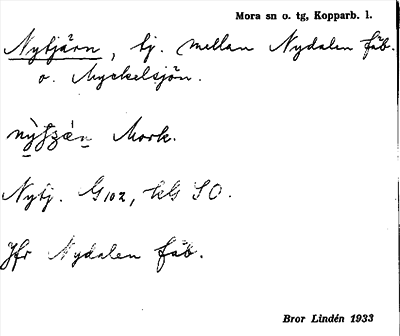 Mora sn o. tg, Kopparb. l.
Nytjärn, tj. mellan Nydalen fäb.
o. Myckelsjön.
Mork.
Nytj. G102, kls SO.
Jfr Nydalen fäb.
Bror Lindén 1933